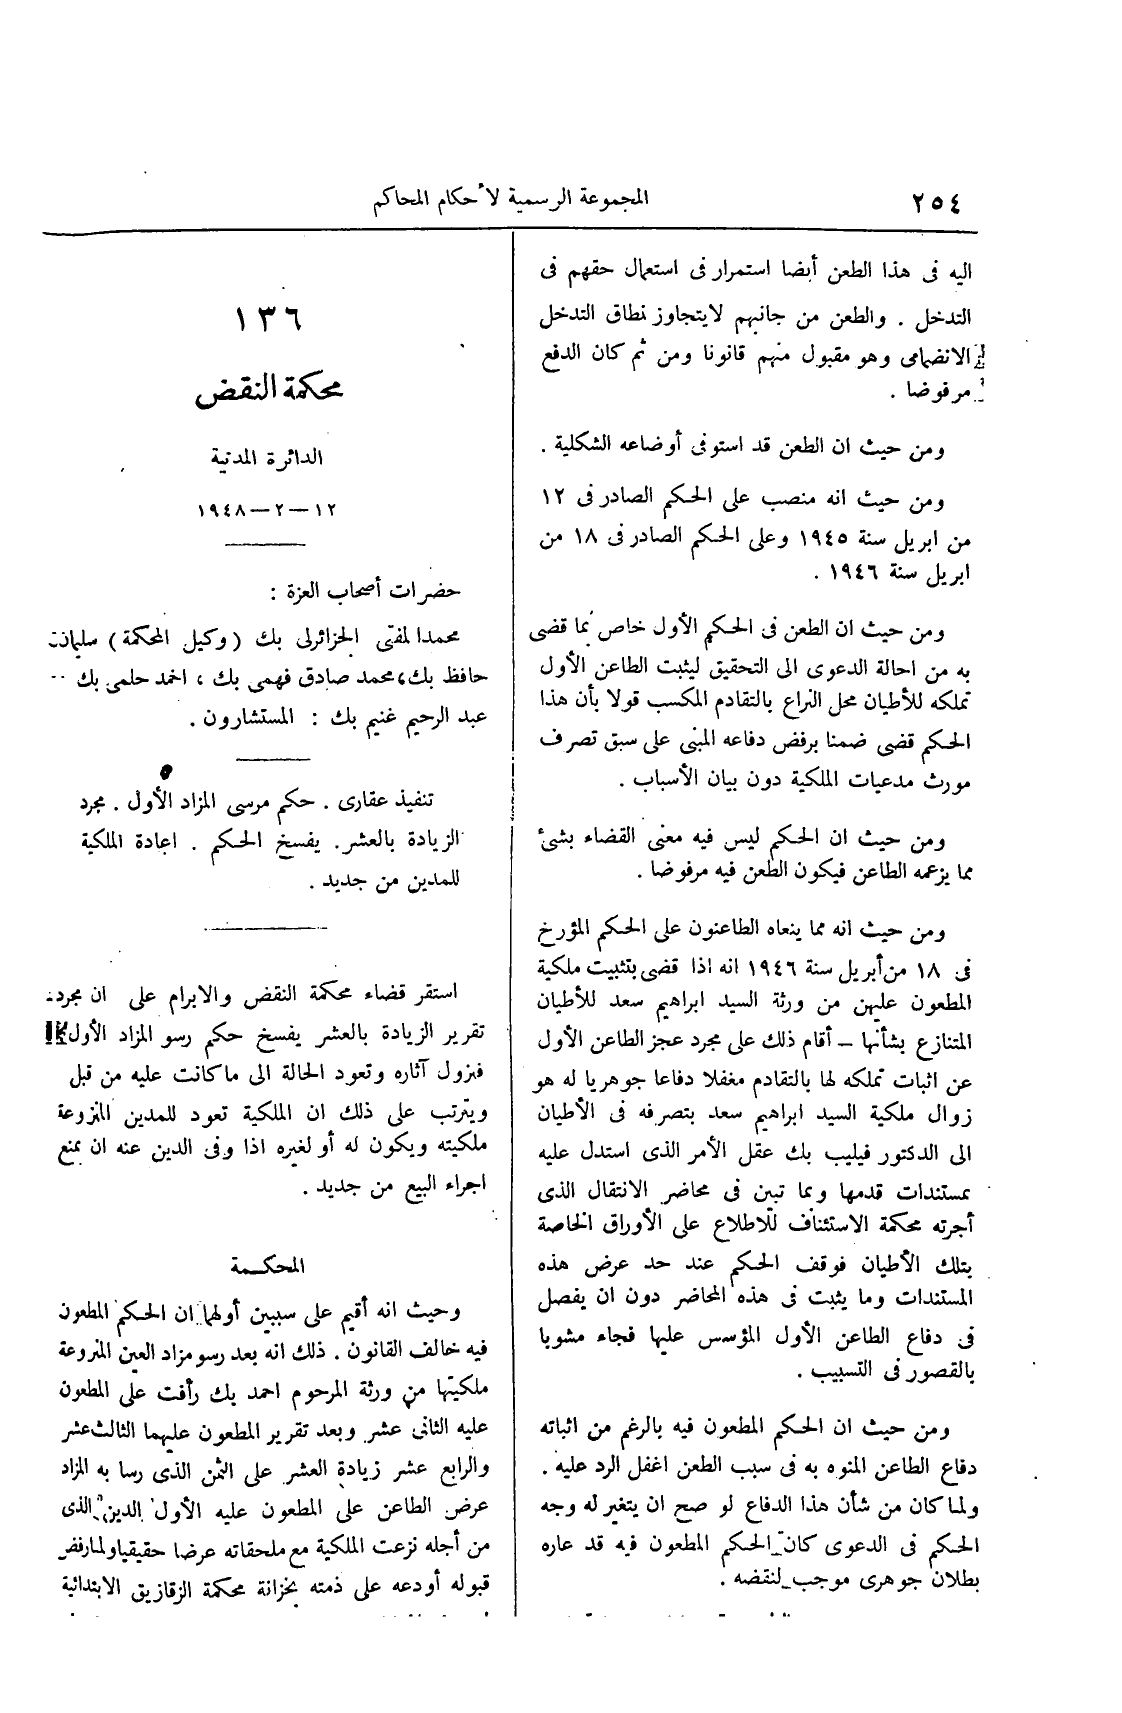 ٢٥٤
المجموعة الرسمية لأحكام المحاكم
اليه فى هذا الطعن أيضا استمرار فى استعمال حقهم فى
التدخل . والطعن من جانبهم لا يتجاوز نطاق التدخل
الانضمامى وهو مقبول منهم قانونا ومن ثم كان الدفع
مرفوضا .
ومن حيث ان الطعن قد استوفى أوضاعه الشكلية .
ومن حيث انه منصب على الحكم الصادر فى ١٢
من ابريل سنة ١٩٤٥ وعلى الحكم الصادر فى ١٨ من
ابريل سنة ١٩٤٦ .
ومن حيث ان الطعن فى الحكم الأول خاص بما قضى
به من احالة الدعوى الى التحقيق ليثبت الطاعن الأول
تملكه للأطيان محل النزاع بالتقادم المكسب قولا بأن هذا
الحكم قضى ضمنا برفض دفاعه المبنى على سبق تصرف
مورث مدعيات الملكية دون بيان الأسباب .
ومن حيث ان الحكم ليس فيه معنى القضاء بشئ
مما يزعمه الطاعن فيكون الطعن فيه مرفوضا .
ومن حيث انه مما ينعاه الطاعنون على الحكم المؤرخ
فى ١٨ من أبريل سنة ١٩٤٦ انه اذا قضى بتثبيت ملكية
المطعون عليهن من ورثة السيد ابراهيم سعد للأطيان
المتنازع بشأنها – أقام ذلك على مجرد عجز الطاعن الأول
عن اثبات تملكه لها بالتقادم مغفلا دفاعا جوهريا له هو
زوال ملكية السيد ابراهيم سعد بتصرفه فى الأطيان
الى الدكتور فيليب بك عقل الأمر الذى استدل عليه
بمستندات قدمها وبما تبين فى محاضر الانتقال الذى
أجرته محكمة الاستئناف للاطلاع على الأوراق الخاصة
بتلك الأطيان فوقف الحكم عند حد عرض هذه
المستندات وما يثبت فى هذه المحاضر دون ان يفصل
فى دفاع الطاعن الأول المؤسس عليها فجاء مشوبا
بالقصور فى التسبيب .
ومن حيث ان الحكم المطعون فيه بالرغم من اثباته
دفاع الطاعن المنوه به فى سبب الطعن اغفل الرد عليه .
ولما كان من شأن هذا الدفاع لو صح ان يتغير له وجه
الحكم فى الدعوى كان الحكم المطعون فيه قد عاره
بطلان جوهرى موجب لنقضه .
١٣٦
محكمة النقض
الدائرة المدنية
١٢–٢–١٩٤٨
حضرات أصحاب العزة :
محمد المفتى الجزائرلى بك (وكيل المحكمة) سليمان
حافظ بك، محمد صادق فهمى بك ، احمد حلمى بك
عبد الرحيم غنيم بك : المستشارون .
تنفيذ عقارى . حكم مرسى المزاد الأول . مجرد
الزيادة بالعشر. يفسخ الحكم . اعادة الملكية
للمدين من جديد .
استقر قضاء محكمة النقض والابرام على ان مجرد
تقرير الزيادة بالعشر يفسخ حكم رسو المزاد الأول
فيزول آثاره وتعود الحالة الى ما كانت عليه من قبل
ويترتب على ذلك ان الملكية تعود للمدين المنزوعة
ملكيته ويكون له أو لغيره اذا وفى الدين عنه ان يمنع
اجراء البيع من جديد .
المحكمة
وحيث انه أقيم على سببين أولهما ان الحكم المطعون
فيه خالف القانون . ذلك انه بعد رسو مزاد العين المنزوعة
ملكيتها من ورثة المرحوم احمد بك رأفت على المطعون
عليه الثانى عشر وبعد تقرير المطعون عليهما الثالث عشر
والرابع عشر زيادة العشر على الثمن الذى رسا به المزاد
عرض الطاعن على المطعون عليه الأول الدين الذى
من أجله نزعت الملكية مع ملحقاته عرضا حقيقيا ولما رفض
قبوله أودعه على ذمته بخزانة محكمة الزقازيق الابتدائية